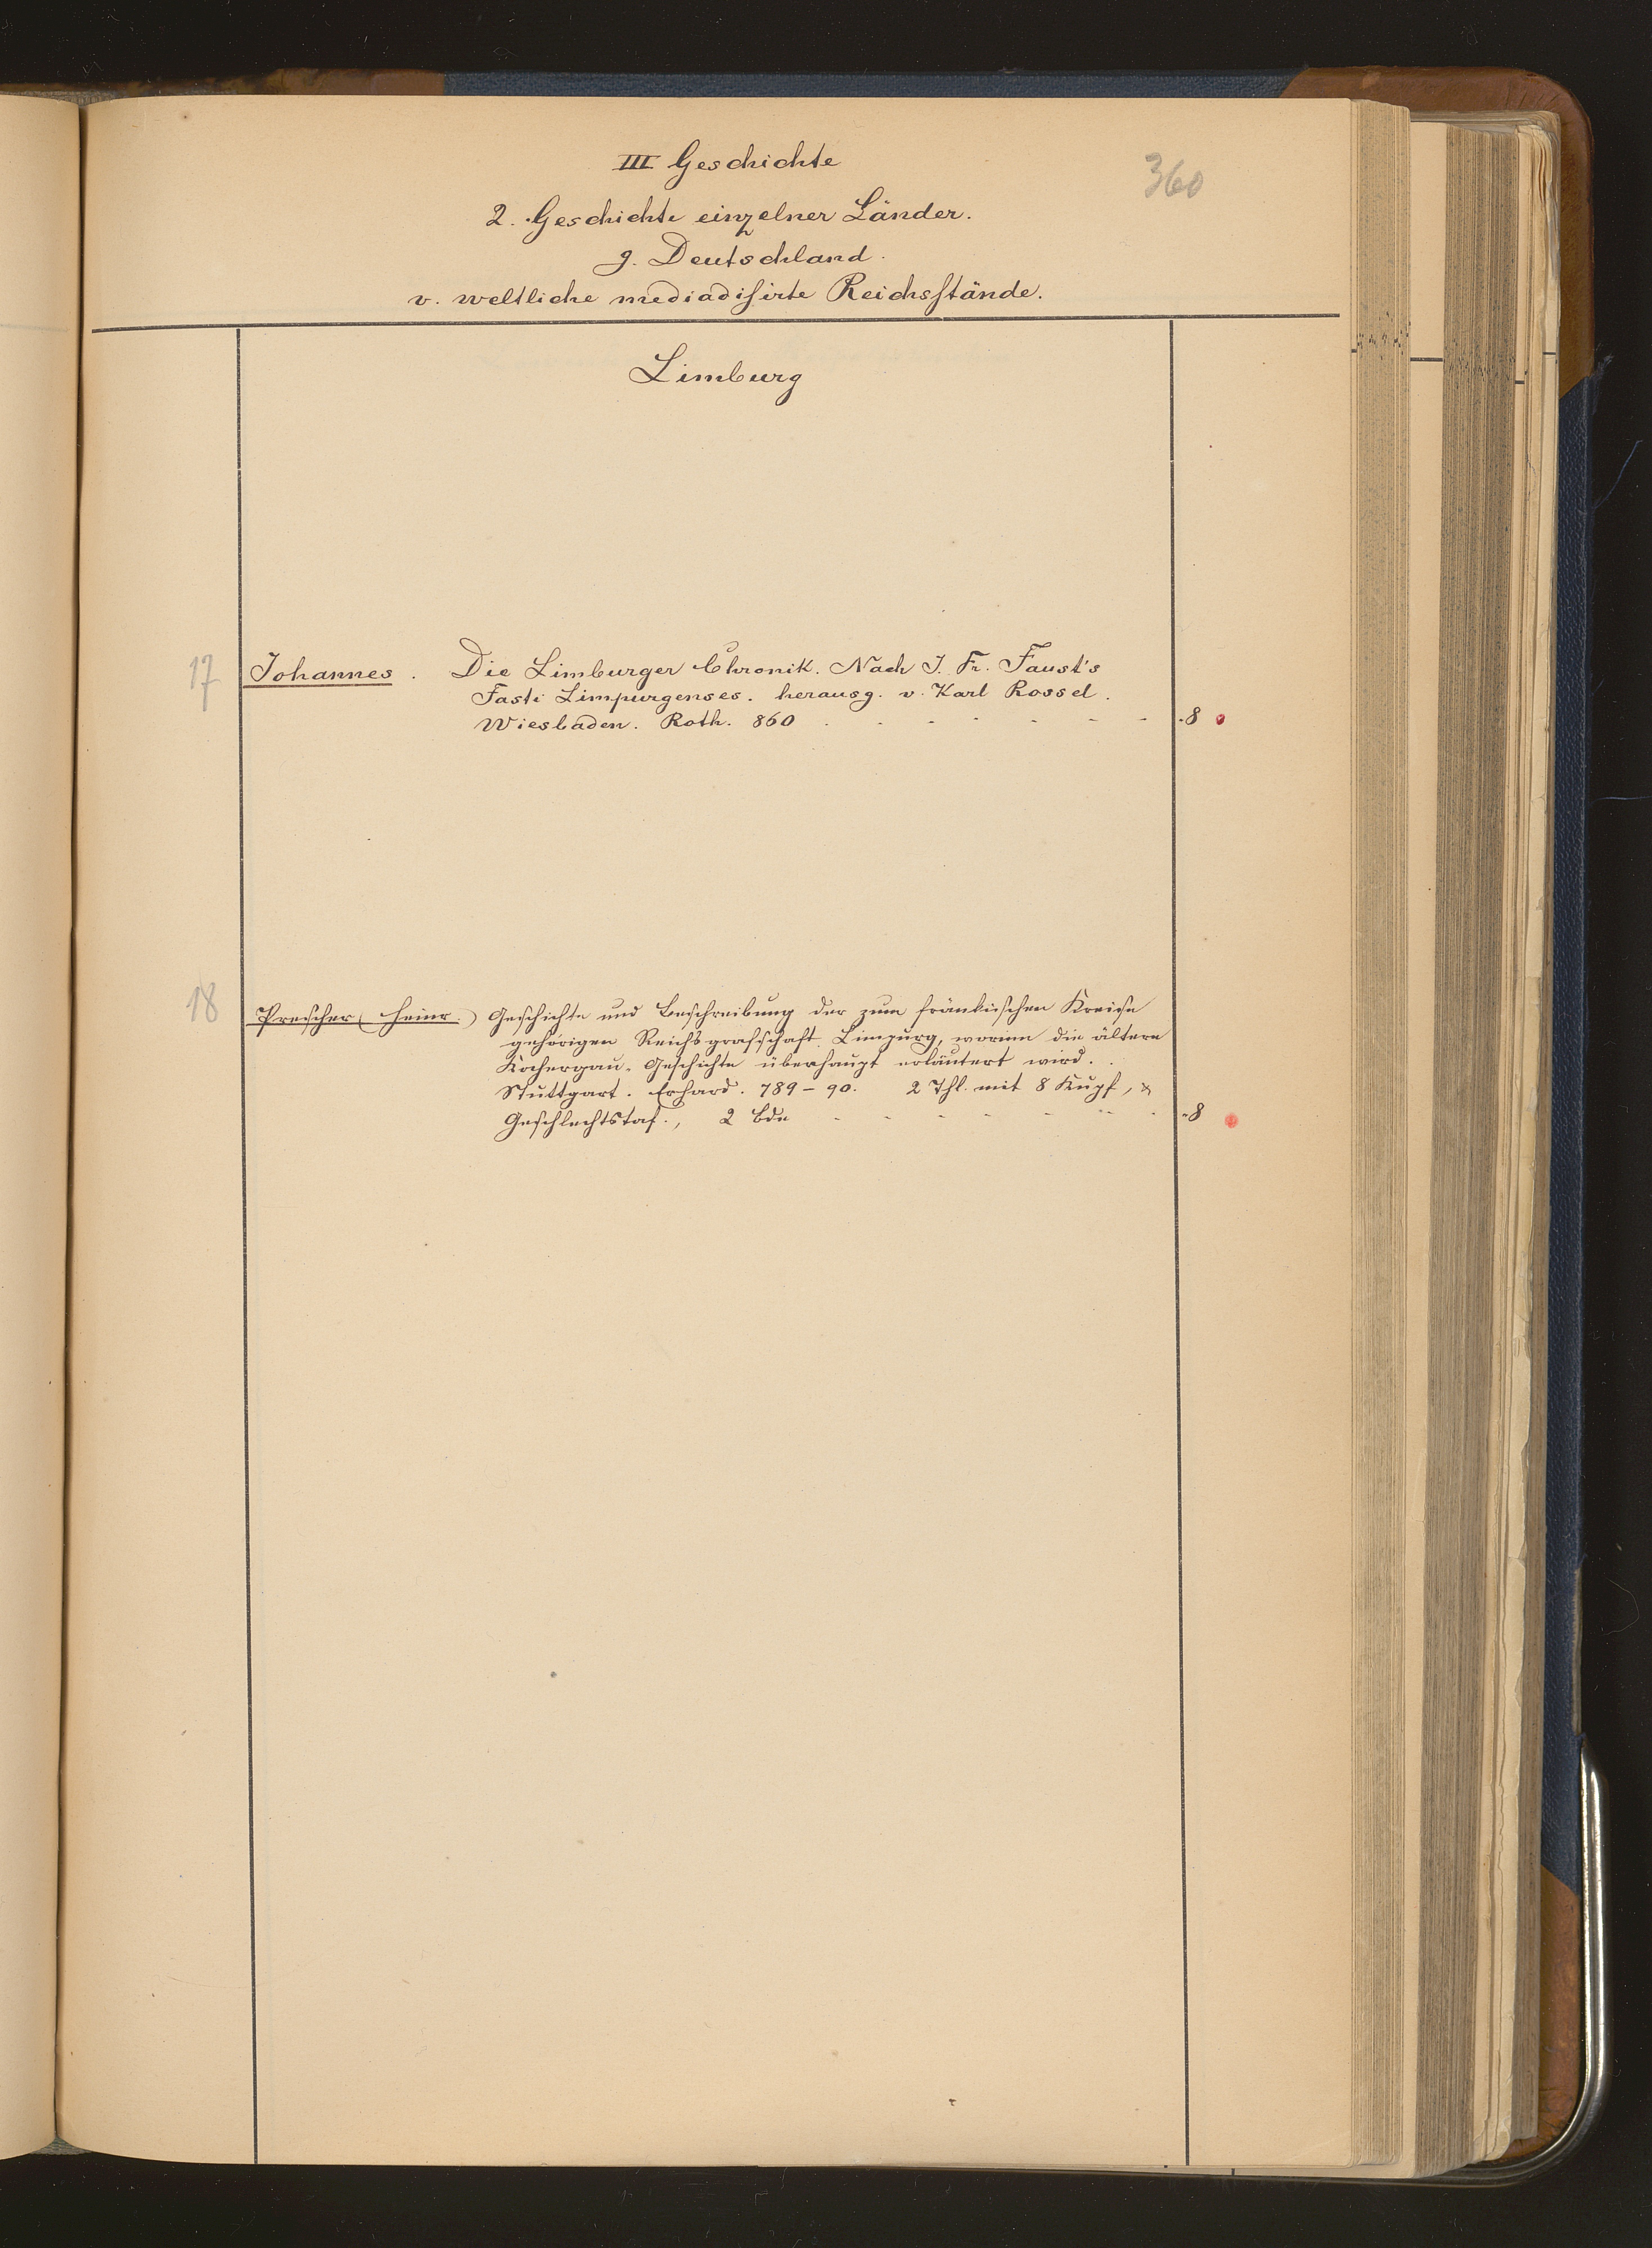 360
III Geschichte
2. Geschichte einzelner Länder.
g. Deutschland.
v. weltliche mediadisirte Reichsstände.
Limburg
17 Johannes. Die Limburger Chronik. Nach J. Fr. Faust's
Fasti Limpurgenses. herausg. v. Karl Rossel.
Wiesbaden. Roth. 860 . - - - - - - -8
18 Prescher (Heinr.) Geschichte und Beschreibung der zum fränkischen Kreise
gehörigen Reichsgrafschaft Limpurg, worinn die ältere
Kochergau-Geschichte überhaupt erläutert wird.
Stuttgart. Erhard. 789-90. 2 Thl. mit 8 Kupf, &
Geschlechtstaf., 2 Bde - - - - - - - -8